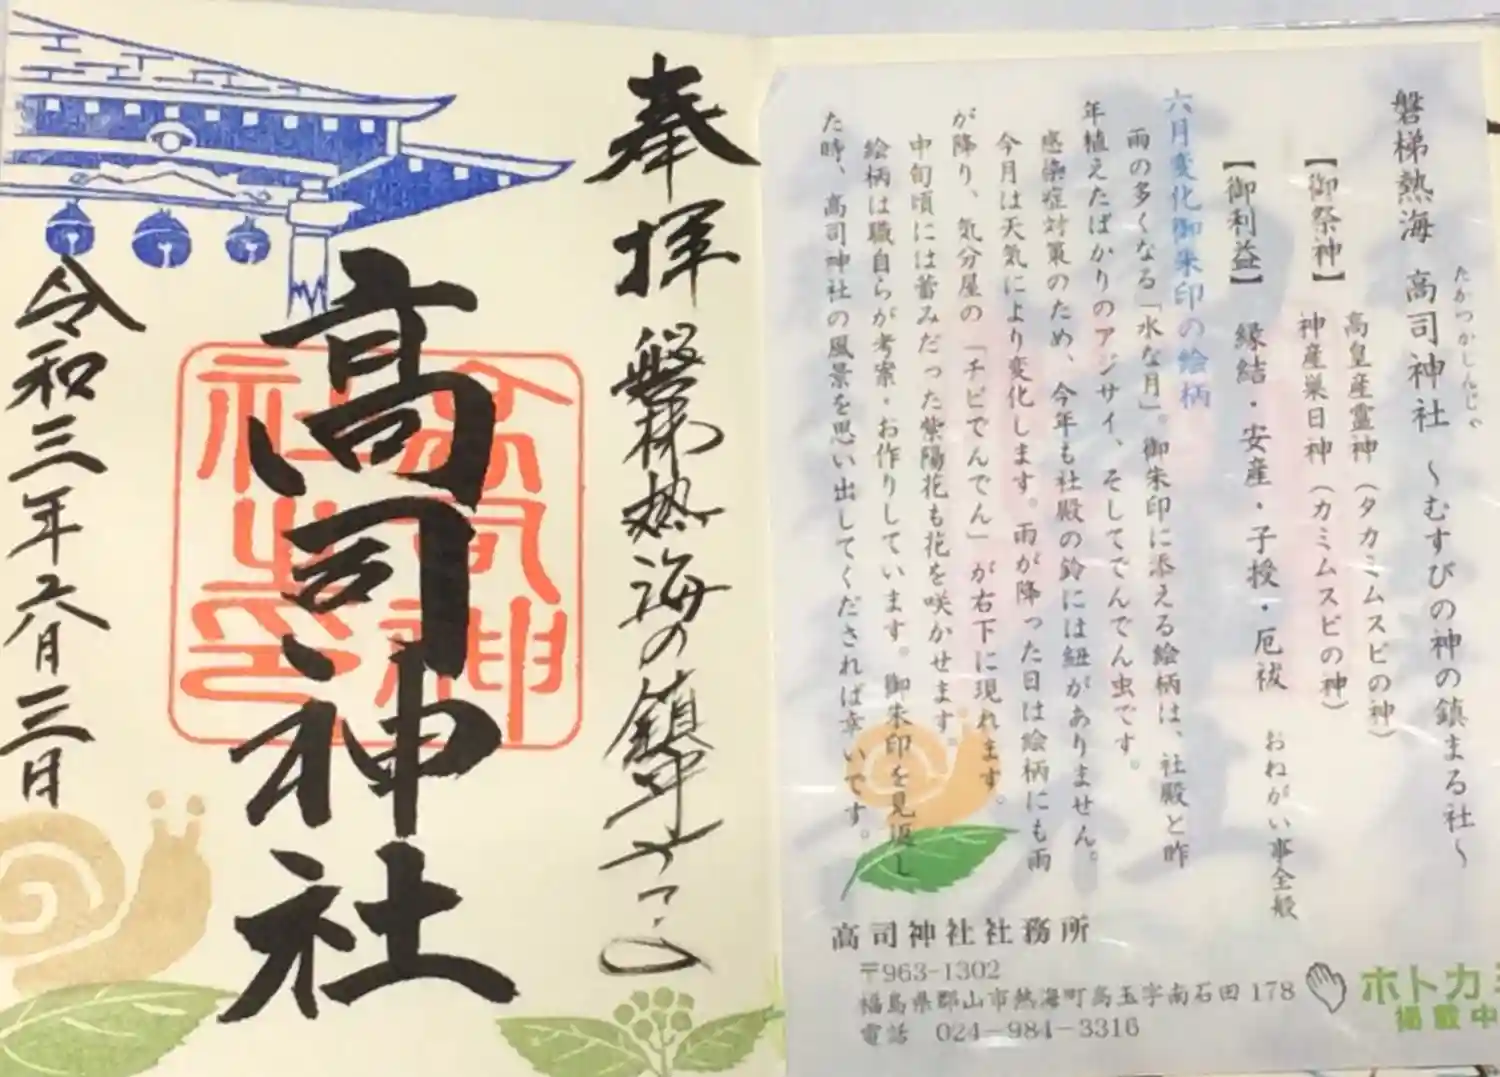 奉拝
磐梯熱海の鎮守やしろ
高司神社
高司神社之印
令和三年六月三日
磐梯熱海 高司神社 ～むすびの神の鎮まる社～
たかつかしんじゃ
【御祭神】 高皇産霊神（タカミムスビの神）
神産巣日神（カミムスビの神）
【御利益】 縁結・安産・子授・厄祓 おねがい事全般
六月変化御朱印の絵柄
雨の多くなる「水な月」。御朱印に添える絵柄は、社殿と昨
年植えたばかりのアジサイ、そしてでんでん虫です。
感染症対策のため、今年も社殿の鈴には紐がありません。
今月は天気により変化します。雨が降った日は絵柄にも雨
が降り、気分屋の「チビでんでん」が右下に現れます。
中旬頃には蕾みだった紫陽花も花を咲かせます。
絵柄は職自らが考案・お作りしています。御朱印を見返し
た時、高司神社の風景を思い出してくだされば幸いです。
高司神社社務所
〒963-1302
福島県郡山市熱海町高玉字南石田178
電話 024－984－3316
ホトカミ
掲載中